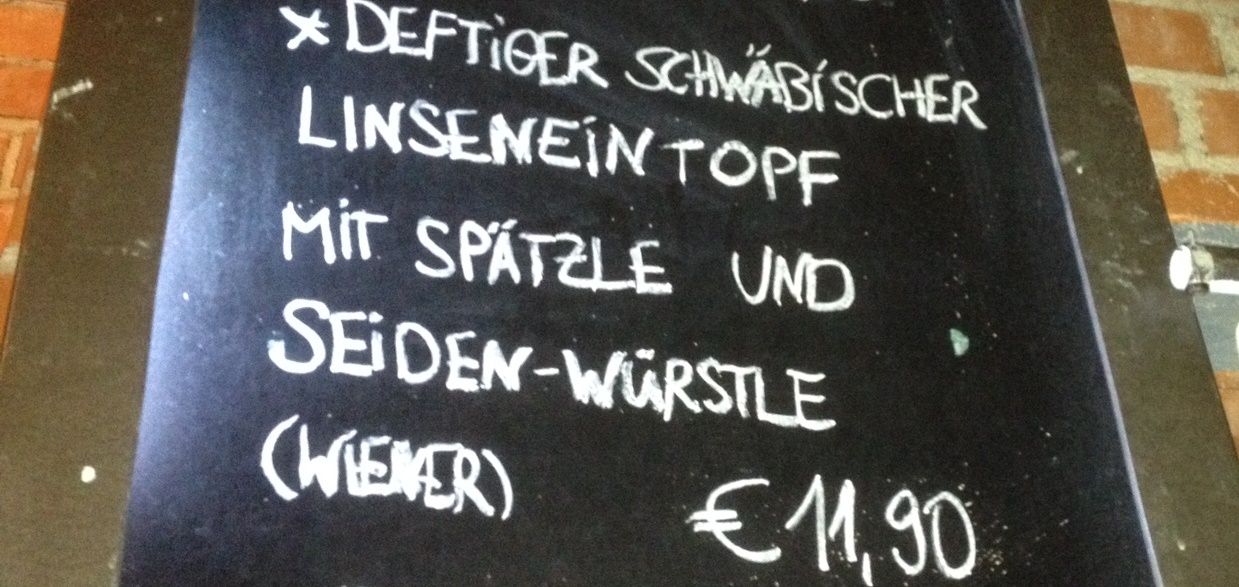 * DEFTIGER SCHWÄBISCHER
LINSENEINTOPF
MIT SPÄTZLE UND
SEIDEN-WÜRSTLE
(WIENER)
€ 11,90